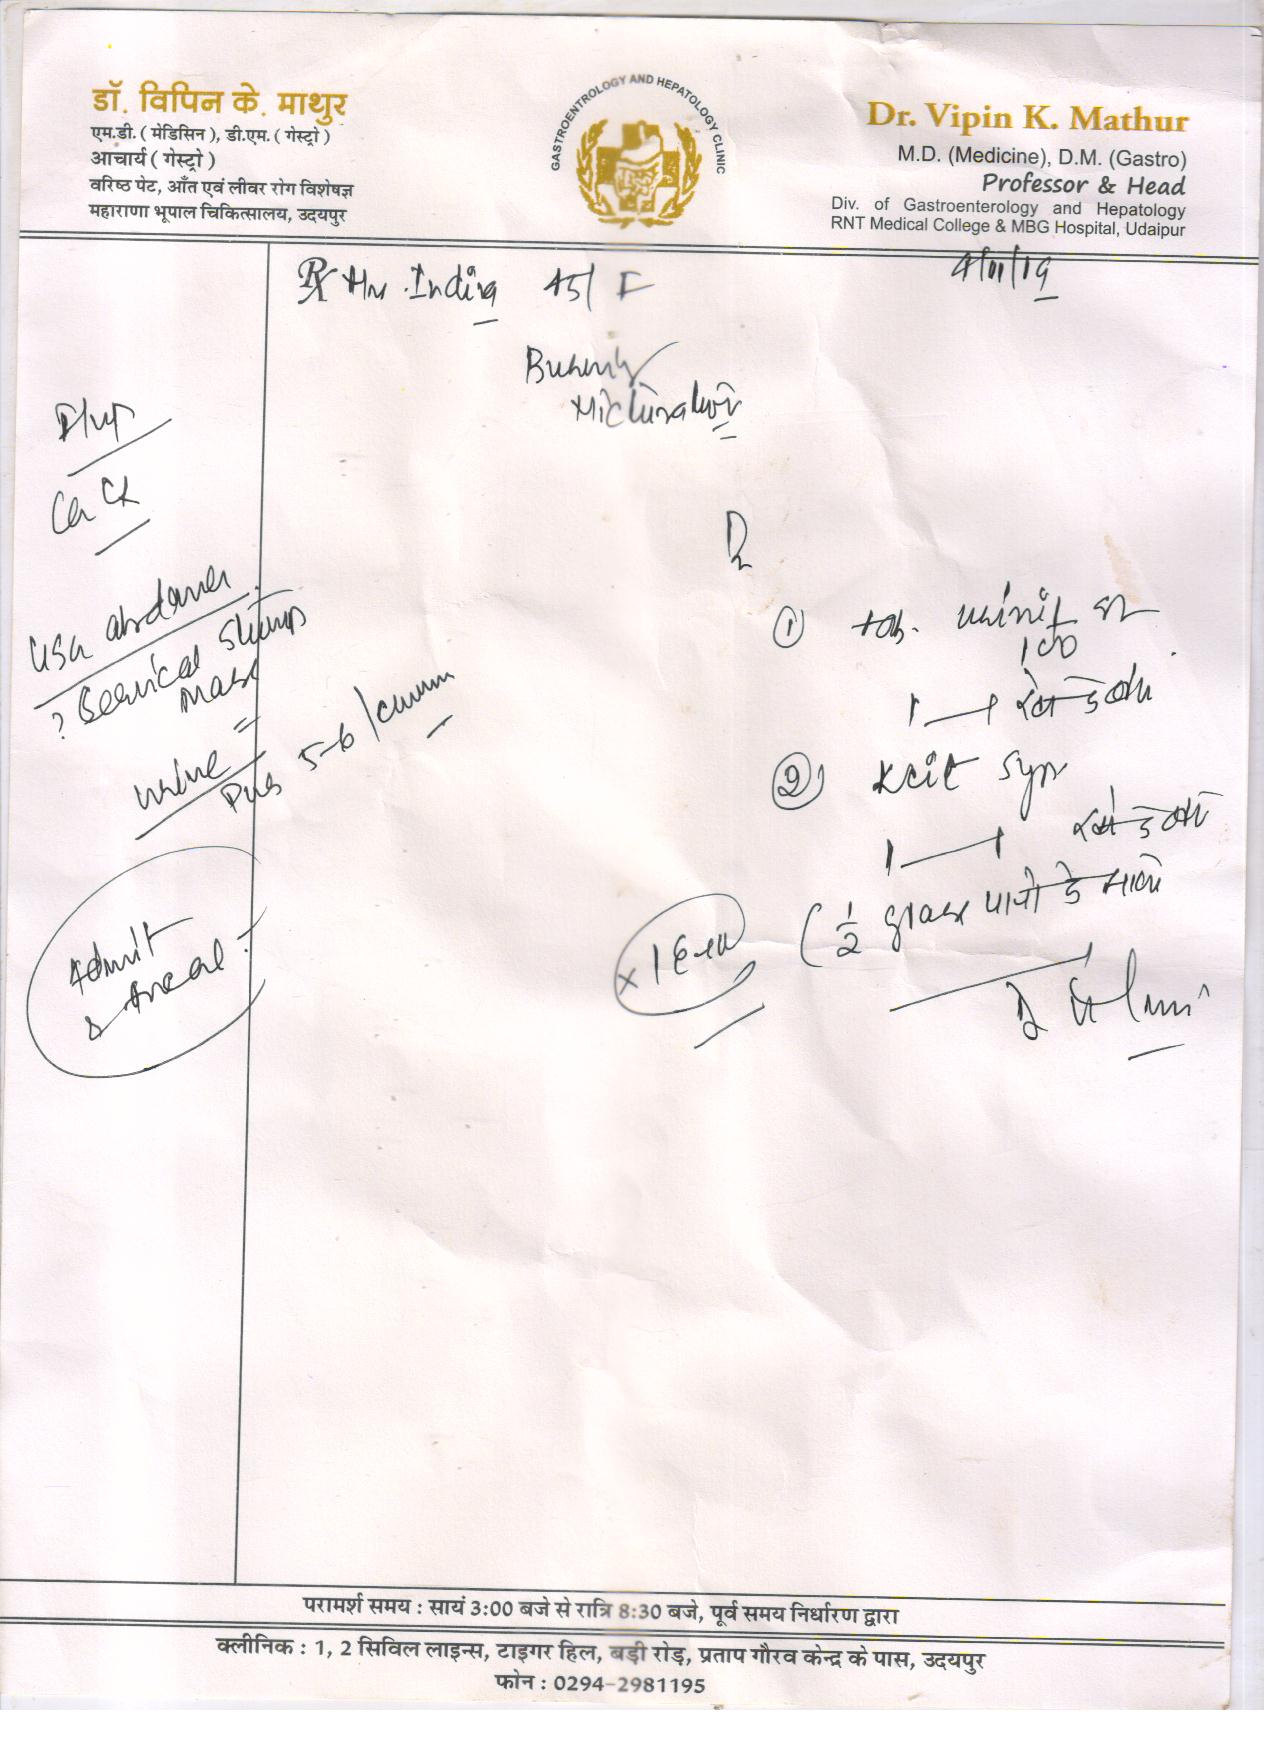 डॉ. विपिन के. माथुर
एम.डी. ( मेडिसिन ), डी.एम. ( गेस्ट्रो )
आचार्य ( गेस्ट्रो )
वरिष्ठ पेट, आँत एवं लीवर रोग विशेषज्ञ
महाराणा भूपाल चिकित्सालय, उदयपुर
GASTROENTROLOGY AND HEPATOLOGY CLINIC
Dr. Vipin K. Mathur
M.D. (Medicine), D.M. (Gastro)
Professor & Head
Div. of Gastroenterology and Hepatology
RNT Medical College & MBG Hospital, Udaipur
4/11/19
Rx Mrs. Indira 45/F
Burning
Micturation
F/up
Ca Cx
USG abdomen
? Cervical stump
mass
Urine
Pus 5-6/cumm
Admit
&
① tab.
100
1
② Kcit syp
1 1
(1/2 glass पानी के साथ
परामर्श समय : सायं 3:00 बजे से रात्रि 8:30 बजे, पूर्व समय निर्धारण द्वारा
क्लीनिक : 1, 2 सिविल लाइन्स, टाइगर हिल, बड़ी रोड़, प्रताप गौरव केन्द्र के पास, उदयपुर
फोन : 0294-2981195